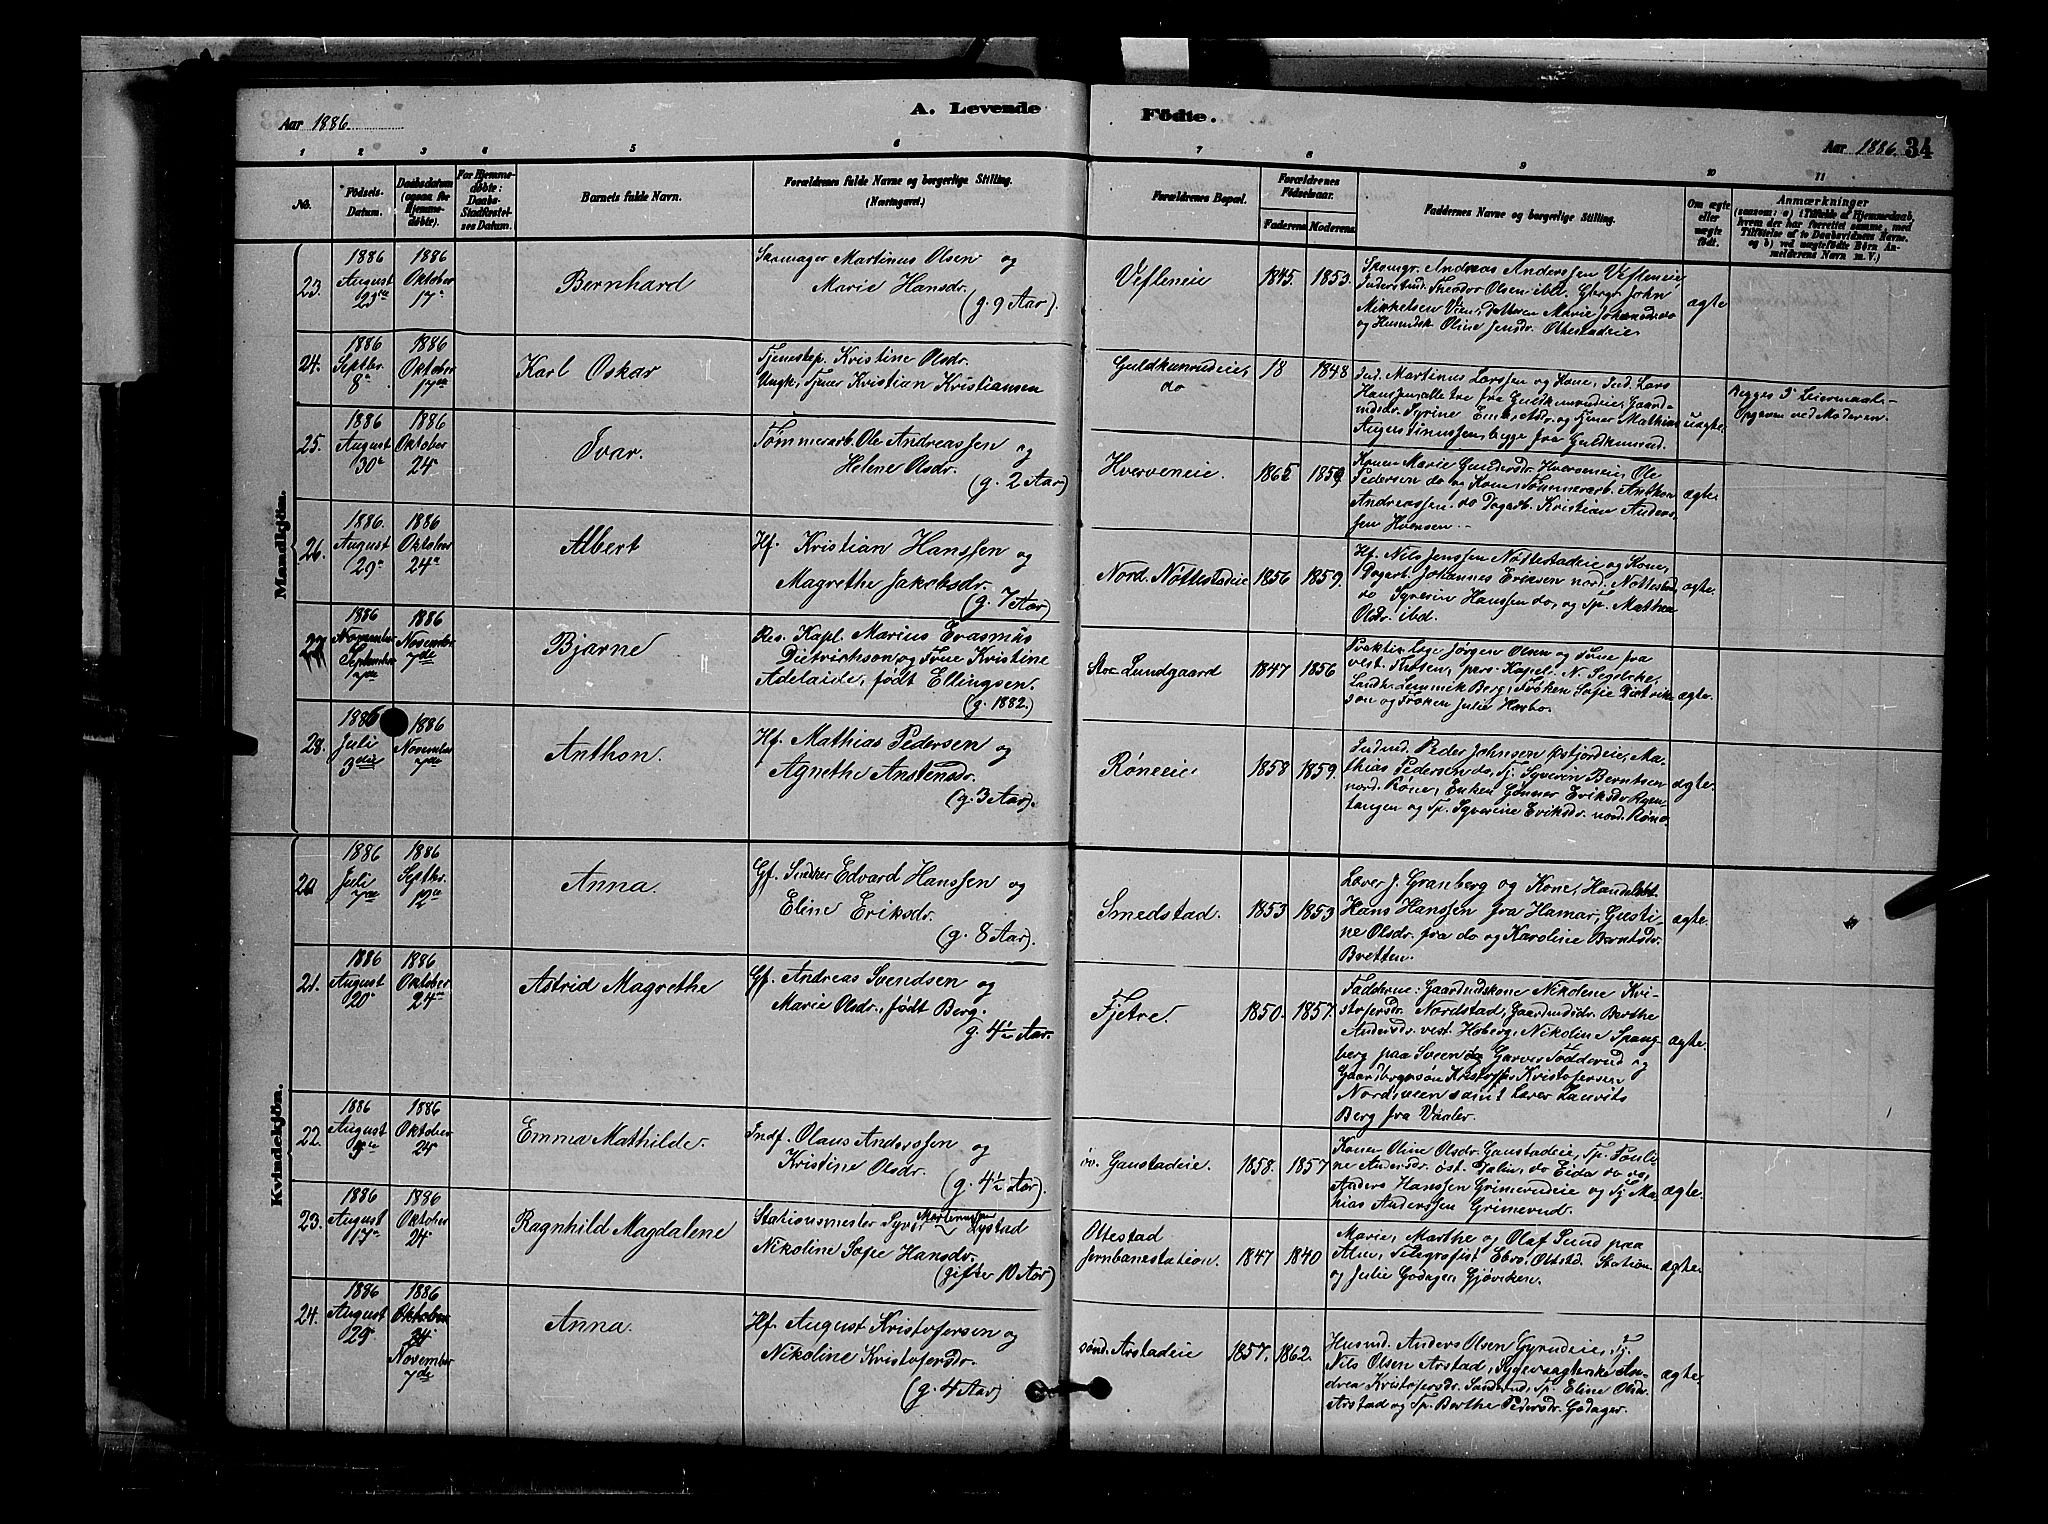 Aar 1886
A. Levende
Födte.
Aar 1886.
34
1 2 3 4 5 6 7 8 9 10 11
No.
Födsels-
Datum.
Daabsdatum
(ogsaa for
Hjemme-
døbte).
For Hjemme-
døbte:
Daabs-
Stadfæstel-
ses Datum.
Barnets fulde Navn.
Forældrenes fulde Navne og borgerlige Stilling.
(Næringsvei.)
Forældrenes Bopæl.
Forældrenes
Födselsaar.
Faderens
Moderens
Faddernes Navne og borgerlige Stilling.
Om ægte
eller
uægte
født.
Anmærkninger
(saasom: a) i Tilfælde af Hjemmedaab,
hvem der har forrettet samme, med
Tilføielse af to Daabsvidners Navne.
og b) ved uægtefødte Børn An-
melderens Navn m. V.)
Mandkjön.
23.
1886
August
1886
Oktober
17
Bernhard
Skomager Martinus Olsen og
Marie Hansdr.
(g. 9 Aar).
1845. 1853.
Skomgr. Andreas Anderssen
Theodor Olsen ibd. Gbrgr. John
Mikkelsen
og Husmdsk. Oline Jensdr. Ottestadeie.
ægte
24.
1886
Septbr.
8
1886
Oktober
17
Karl Oskar
Tjenestep. Kristine Olsdr.
Ungk. Tjener Kristian Kristiansen
Guldkunrudeie,
do
18 1848
Ind. Martinus Larssen og Kone, Ind. Lars
Hanssen, alle tre fra Guldkunrudeie, Gaard-
og Tjener Mathias
Augustinussen, begge fra Guldkunrud.
uægte
Begges 3 Leiermaal.-
Opgiven ved Moderen.
25.
1886
August
30
1886
Oktober
24
Ivar.
Tømmerarb. Ole Andreassen og
Helene Olsdr.
(g. 2 Aar)
Hverveneie.
Konen Marie Gundersdr. Hverveneie, Ole
Pedersen do og Kone, Tømmerarb. Anthon
Andreassen do Dagarb. Kristian Anders-
sen
ægte
26.
1886.
August
29
1886
Oktober
24
Albert
Hf. Kristian Hanssen og
Magrethe Jakobsdr.
(g. 7 Aar)
Nord. Nöttestadeie
1856 1859.
Hf. Nils Jenssen Nöttestadeie og Kone,
Dagarb. Johannes Eriksen nord. Nöttestad,
do Syverin Hanssen do, og Tp. Mathea
Olsdr. ibd.
ægte.
27
1886
November
September
1886
November
7de
Bjarne
Res. Kapl. Marius Erasmus
Dietrichson og Frue Kristine
Adelaide, født Ellingsen.
(g. 1882.)
Store Lundgaard
1847 1856
Praktis. læge Jörgen Olsen og Frue fra
vest. pers. Kapel. N.
Berg, Fröken Sofie
son og Fröken Julie Harbo.
ægte.
28.
1886
Juli
3die
1886
November
7de
Anthon.
Hf. Mathias Pedersen og
Agnethe Anstensdr.
(g. 3 Aar).
Röneeie
1858 1859.
Indmd. Peder Johnsen Östfjordeie, Ma-
thias Pedersen do, Tj. Syverin Berntsen
nord. Röne, Enken Gönner Eriksdr.
tangen og Tp. Syverine Eriksdr. nord. Röne.
ægte.
Kvindekjön.
20
1886
Juli
7de
1886
Septbr.
12
Anna.
Gf. Snedker Edvard Hanssen og
Eline Eriksdr.
(g. 8 Aar).
Smedstad.
1853 1853
Lærer J. Granberg og Kone,
Hans Hanssen fra Hamar, Gusti-
ne Olsdr. fra do og Karoline Berntsdr.
Bretten.
ægte.
21.
1886
August
20
1886
Oktober
24
Astrid Magrethe
Gf. Andreas Svendsen og
Marie Olsdr., født Berg.
g. 4½ Aar.
Fjetre.
1850. 1857.
Fadderne: Gaardmdskone Nikolene Kri-
stofersdr. Nordstad, Gaardmdsdr. Berthe
Andersdr. vest. Hoberg, Nikoline Spang-
berg paa Sveen og Garver Födderud og
Gaardbrgersön Kristofersen
Nordsveen samt Lærer Lauritz
Berg fra Vaaler.
ægte.
22.
1886
August
1886
Oktober
24
Emma Mathilde.
Indf. Olaus Anderssen og
Kristine Olsdr.
(g. 4½ Aar).
öv. Gaustadeie.
1858. 1857
Konen Oline Olsdr. Gaustadeie, Tp. Pauli-
ne Andersdr. öst. do Eida do og
Anders Hanssen Grimerudeie og Tj. Ma-
thias Anderssen Grimerud.
ægte.
23.
1886
August
17
1886
Oktober
24
Ragnhild Magdalene
Stationsmester Syver Martinussen Lystad
Nikoline Sofie Hansdr.
(gifte 10 Aar)
Ottestad
Jernbanestation.
1847 1840
Marie, Marthe og Olaf Sund paa
Alm, Telegrafist Ebro, Ottstd. Station
og Julie Godager, Gjöviken.
ægte
24.
1886
August
29
1886
Oktober
24
November
7de
Anna.
Hf. August Kristofersen og
Nikoline Kristofersdr.
(g. 4 Aar)
sönd. Arstadeie
1857. 1862.
Husmd. Anders Olsen Gyrudeie, Tj.
Nils Olsen Arstad, An-
drea Kristofersdr. Sanderud, Tp. Eline Olsdr.
Arstad og Tp. Berthe Pedersdr. Godager.
ægte.